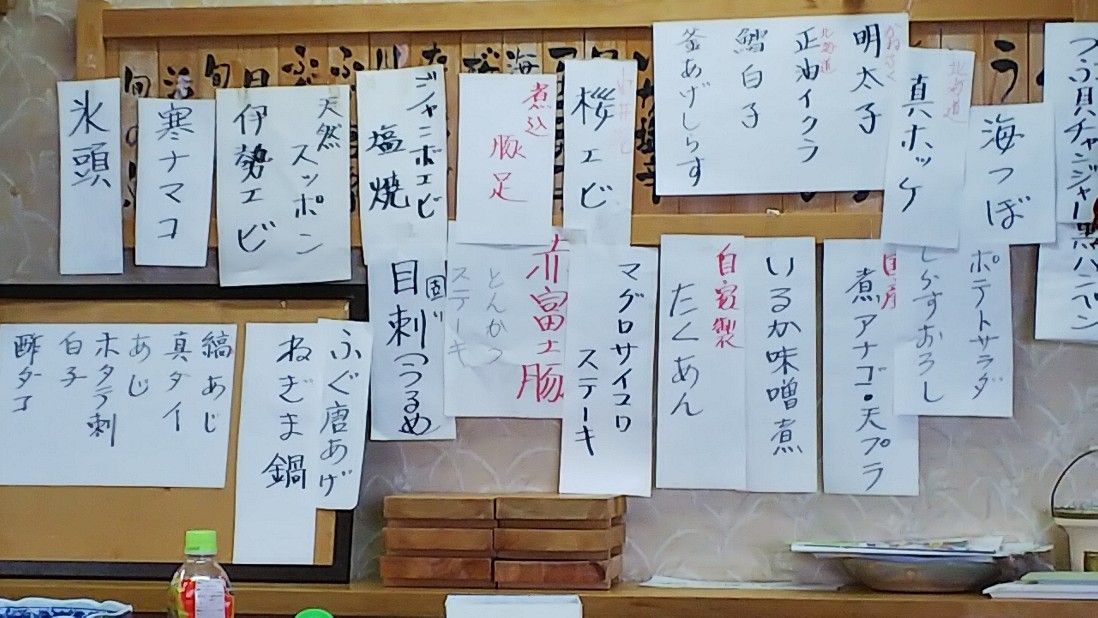 つぶ貝チャンジャー
黒ハンペン
海つぼ
ポテトサラダ
北海道
真ホッケ
しらすおろし
明太子
北海道
正油イクラ
鱈白子
釜あげしらす
煮アナゴ・天プラ
いるか味噌煮
自家製
たくあん
桜エビ
マグロサイコロ
ステーキ
煮込
豚足
赤富士豚
とんかつ
ステーキ
ジャンボエビ
塩焼
固
目刺(うるめ
天然
スッポン
伊勢エビ
寒ナマコ
氷頭
ふぐ唐あげ
ねぎま鍋
縞あじ
真ダイ
あじ
ホタテ刺
白子
酢ダコ